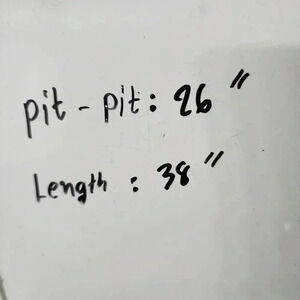 pit - pit : 26 "
Length : 38 "